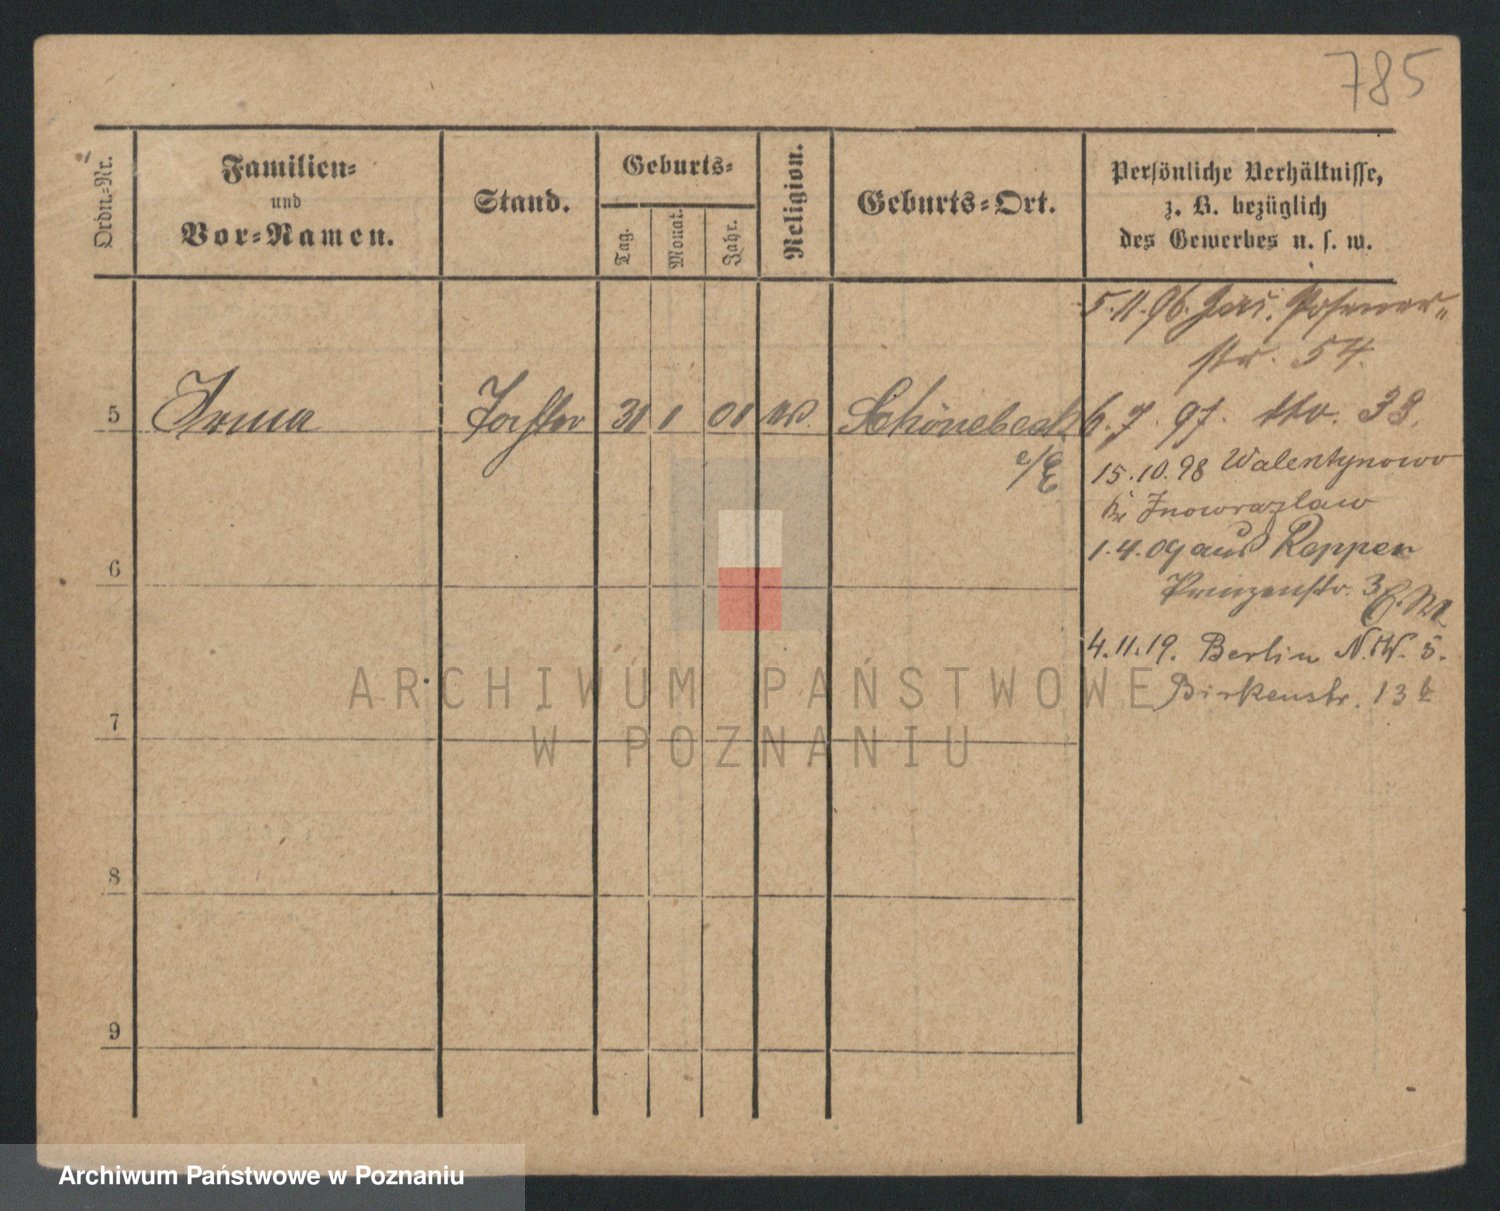 785
Ordn.-Nr.
Familien-
und
Vor-Namen.
Stand.
Geburts-
Tag.
Monat.
Jahr.
Religion.
Geburts-Ort.
Persönliche Verhältnisse,
z. B. bezüglich
des Gewerbes u. s. w.
5.11.96. Posener-
str. 54.
5 Irma Tochter 31 1 01 Schönebeck
a/E
6.7.97. dto. 38.
15.10.98 Walentynowo
Kr Inowrazlaw
1.4.09 aus Reppen
Prinzenstr. 3
4.11.19. Berlin N.W. 5.
Birkenstr. 13
6
7
8
9
ARCHIWUM PAŃSTWOWE
W POZNANIU
Archiwum Państwowe w Poznaniu